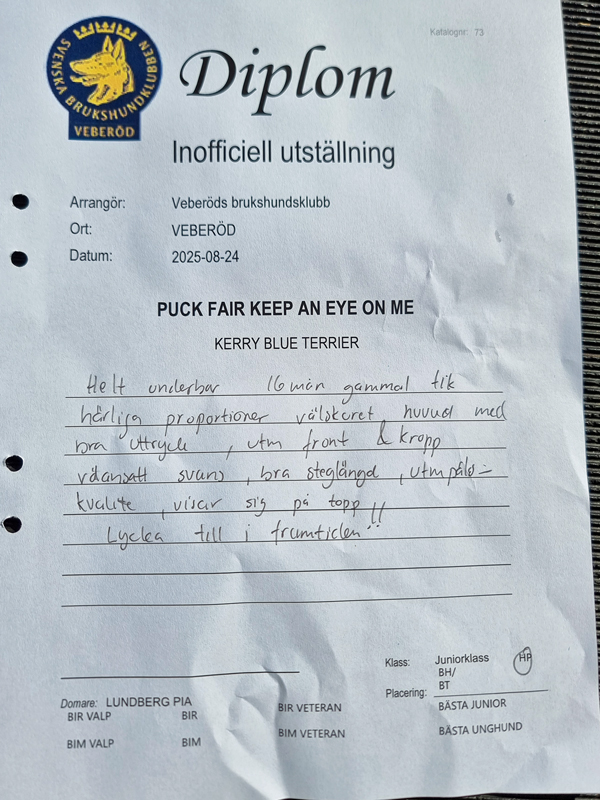 Katalognr: 73
SVENSKA BRUKSHUNDKLUBBEN
VEBERÖD
Diplom
Inofficiell utställning
Arrangör: Veberöds brukshundsklubb
Ort: VEBERÖD
Datum: 2025-08-24
PUCK FAIR KEEP AN EYE ON ME
KERRY BLUE TERRIER
Helt underbar 16 mån gammal tik
härliga proportioner välskuret huvud med
bra uttryck, utm front & kropp
välansatt svans, bra steglängd, utm päls-
kvalite, visar sig på topp!!
Lycka till i framtiden!!
Klass: Juniorklass HP
BH/
BT
Placering:
Domare: LUNDBERG PIA
BIR VALP BIR BIR VETERAN BÄSTA JUNIOR
BIM VALP BIM BIM VETERAN BÄSTA UNGHUND